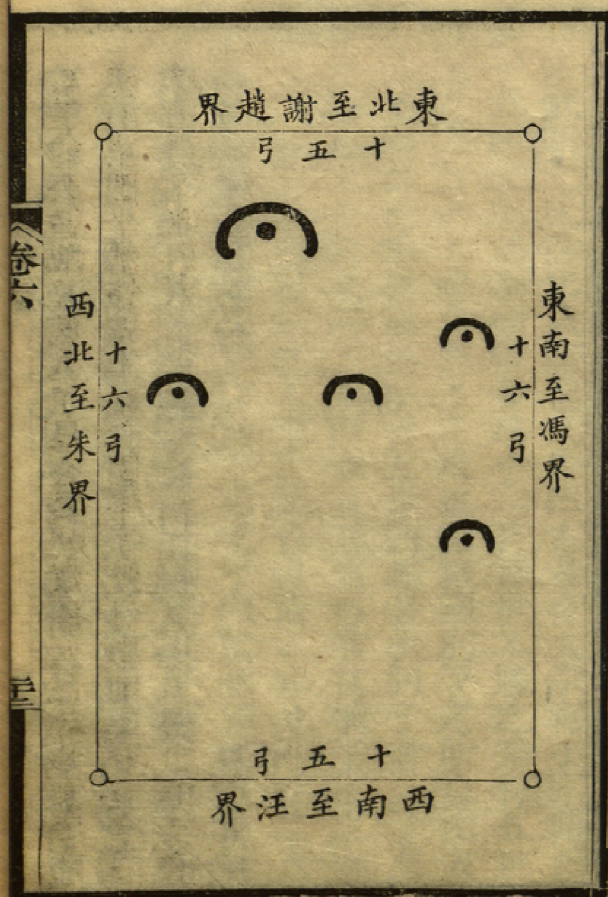 東北至謝趙界
十五弓
東南至馮界
十六弓
十六弓
西北至朱界
十五弓
西南至汪界
卷六